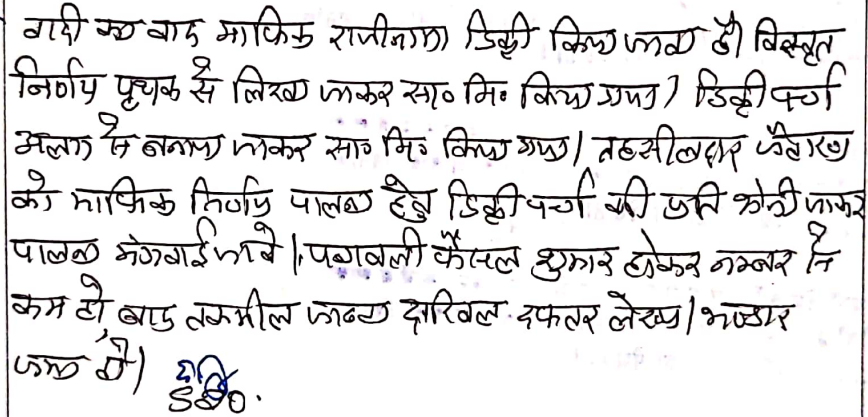 वादी का वाद माफिक राजीनामा डिक्री किया जाता है। विस्तृत
निर्णय पृथक से लिखा जाकर सा० मि० किया गया। डिक्री पर्चा
अलग से बनाया जाकर सा० मि० किया गया। तहसीलदार जैतारण
को माफिक निर्णय पालना हेतु डिक्री पर्चा की प्रति भेजी जाकर
पालना मंगवाई जावे। पत्रावली फैसल शुमार होकर नम्बर से
कम हो, बाद तकमील जाब्ता दाखिल दफ्तर लेख्य भण्डार
जमा हो।